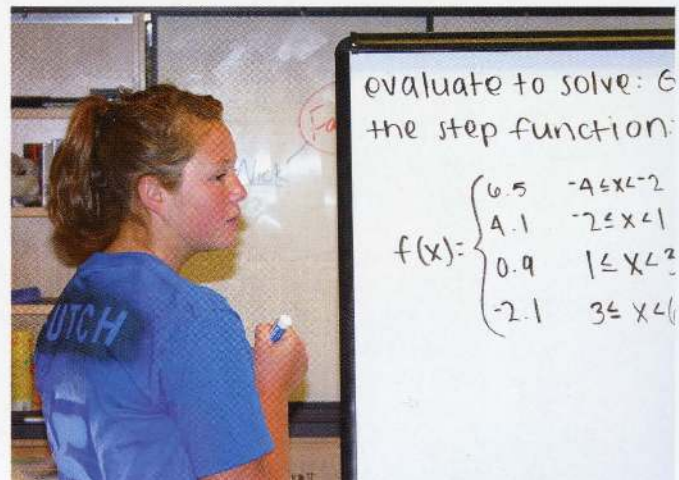 evaluate to solve: G
the step function:
f(x)= { 6.5 -4≤x<-2
4.1 -2≤x<1
0.9 1≤x<3
-2.1 3≤x<6
Nick
UTCH